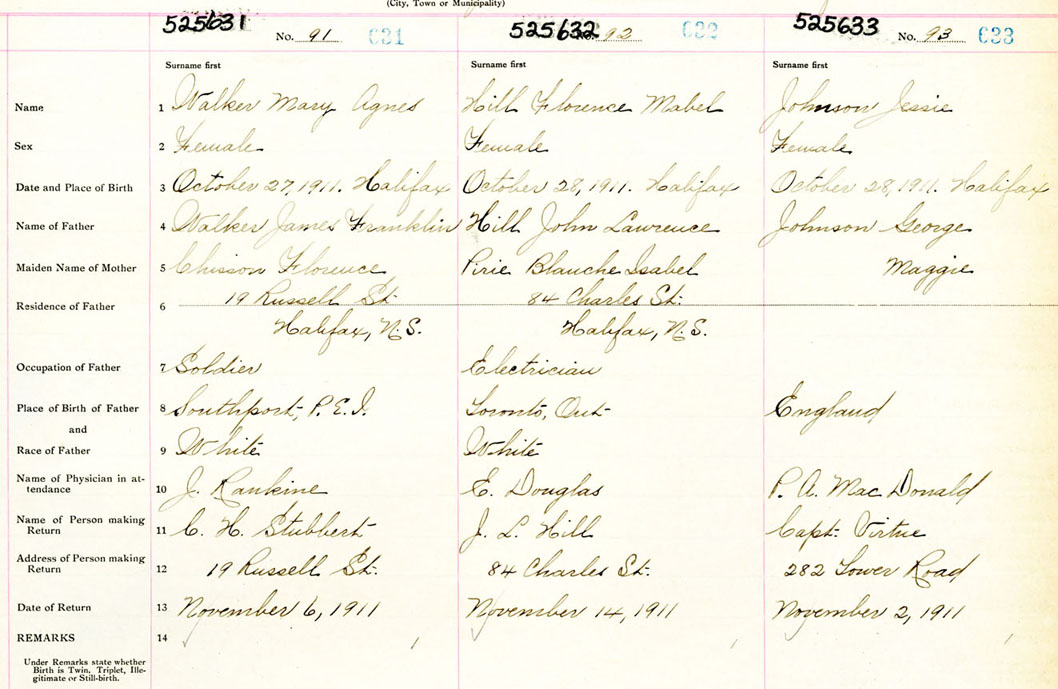 (City, Town or Municipality)
525631 No. 91 631 525632 No. 92 632 525633 No. 93 633
Surname first Surname first Surname first
Name 1 Walker Mary Agnes Hill Florence Mabel Johnson Jessie
Sex 2 Female Female Female
Date and Place of Birth 3 October 27, 1911. Halifax October 28, 1911. Halifax October 28, 1911. Halifax
Name of Father 4 Walker James Franklin Hill John Lawrence Johnson George
Maiden Name of Mother 5 Chisson Florence Pirie Blanche Isabel Maggie
Residence of Father 6 19 Russell St. 84 Charles St.
Halifax, N.S. Halifax, N.S.
Occupation of Father 7 Soldier Electrician
Place of Birth of Father 8 Southport, P.E.I. Toronto, Ont. England
and
Race of Father 9 White White
Name of Physician in at-
tendance 10 J. Rankine E. Douglas P. A. MacDonald
Name of Person making
Return 11 C. H. Stubbert J. L. Hill Capt. Virtue
Address of Person making
Return 12 19 Russell St. 84 Charles St. 282 Lower Road
Date of Return 13 November 6, 1911 November 14, 1911 November 2, 1911
REMARKS 14
Under Remarks state whether
Birth is Twin, Triplet, Ille-
gitimate or Still-birth.